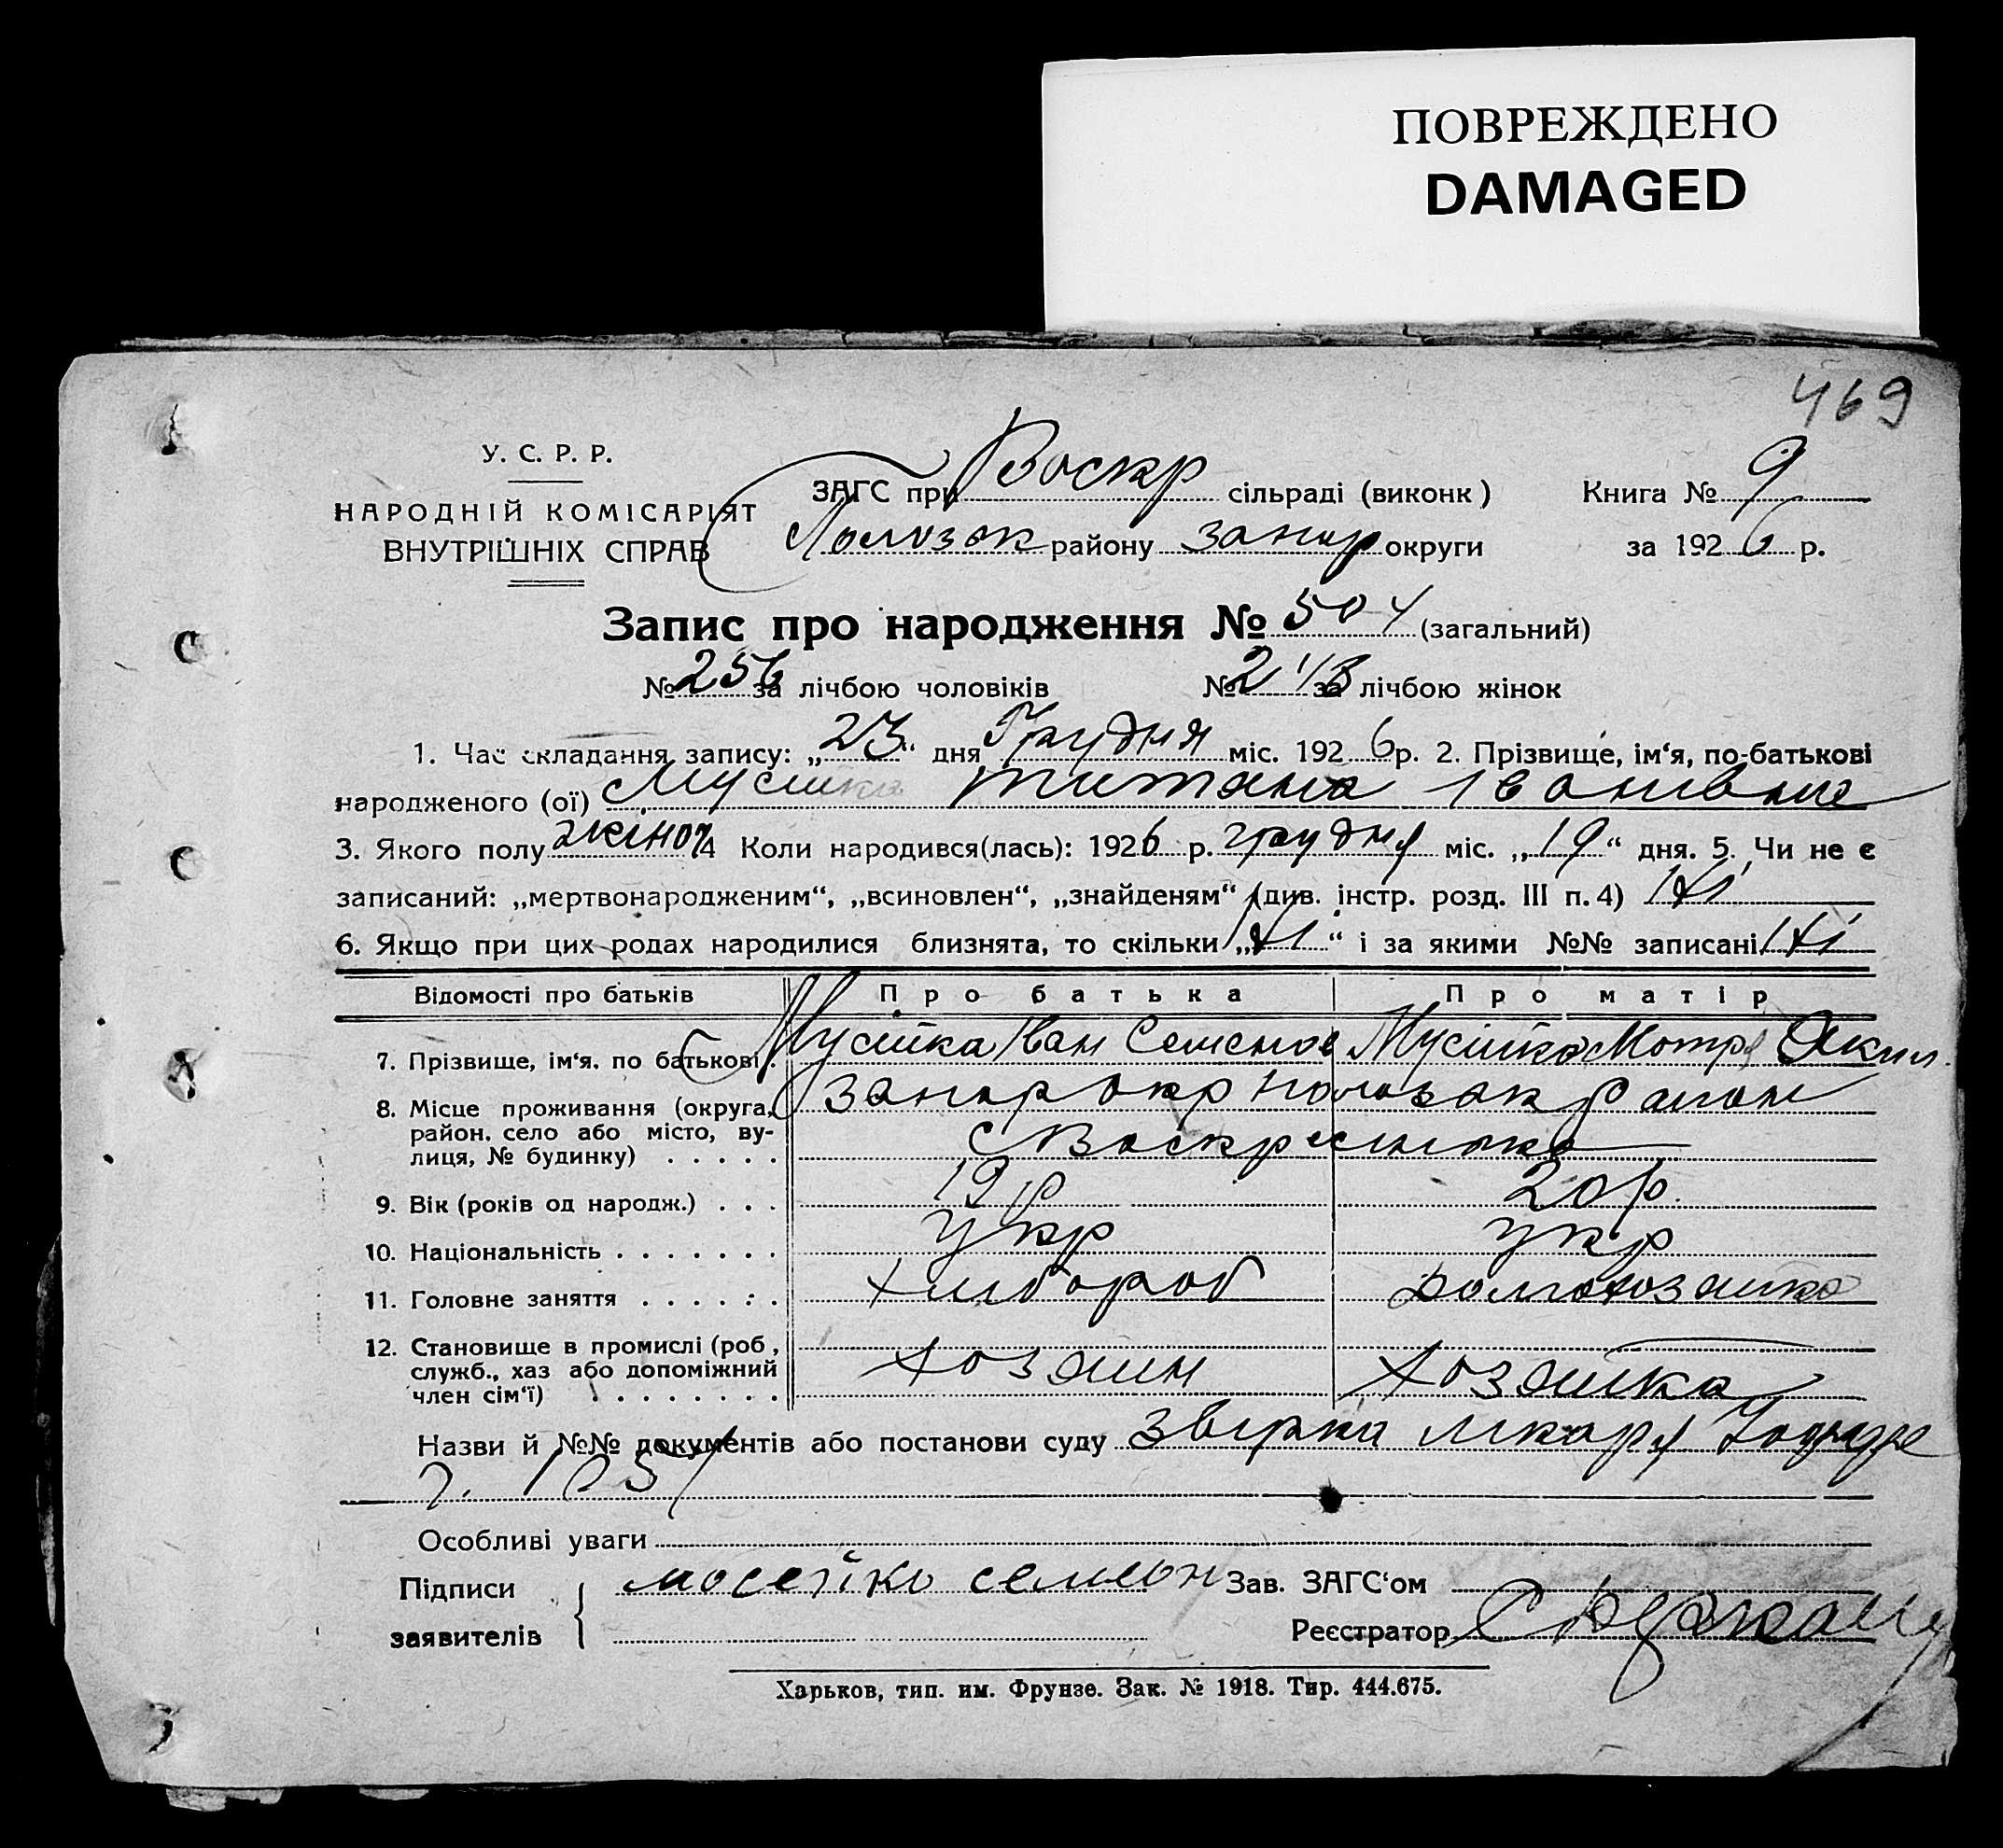 ПОВРЕЖДЕНО
DAMAGED
469
У. С. Р. Р.
НАРОДНІЙ КОМІСАРІЯТ
ВНУТРІШНІХ СПРАВ
ЗАГС при Воскр сільраді (виконк) Книга № 9
Пологзак району Запор округи за 1926 р.
Запис про народження № 504 (загальний)
№ 256 за лічбою чоловіків № 248 за лічбою жінок
1. Час складання запису: „23“ дня Грудня міс. 1926 р. 2. Прізвище, ім‘я, по-батькові
народженого (ої) Мусійка Титяна Іванівна
3. Якого полу жіноч 4 Коли народився(лась): 1926 р. грудня міс. „19“ дня. 5. Чи не є
записаний: „мертвонародженим“, „всиновлен“, „знайденям“ (див. інстр. розд. III п. 4) Ні
6. Якщо при цих родах народилися близнята, то скільки „Ні“ і за якими №№ записані Ні
Відомості про батьків Про батька Про матір
7. Прізвище, ім‘я, по батькові Мусійка Іван Семенов Мусійка Мотря Яким.
8. Місце проживання (округа, Запор окр Пологзак район
район, село або місто, ву-
лиця, № будинку) . . . . . с Воскресенка
9. Вік (років од народж.) . . . 19 р 20 р.
10. Національність . . . . . . . укр укр
11. Головне заняття . . . . . . хлібороб домохозяйка
12. Становище в промислі (роб,
служб., хаз або допоміжний хозяин хозяйка
член сім‘ї) . . . . . . . .
Назви й №№ документів або постанови суду звірка лікаря
Особливі уваги
Підписи мосейко семеон Зав. ЗАГС‘ом
заявителів Реєстратор
Харьков, тип. им. Фрунзе. Зак. № 1918. Тир. 444.675.